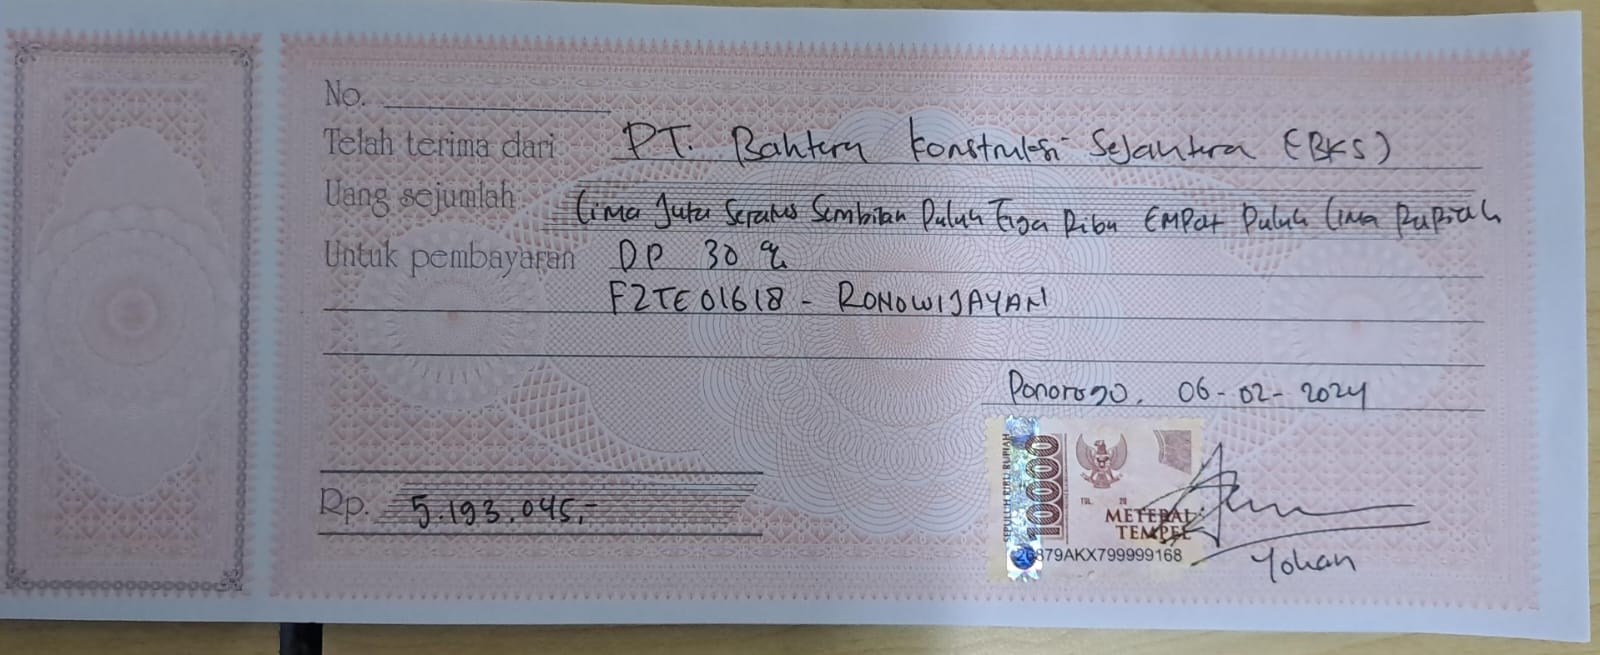 No.
Telah terima dari PT. Bahtera Konstruksi Sejahtera (BKS)
Uang sejumlah Lima Juta Seratus Sembilan Puluh Tiga Ribu Empat Puluh Lima Rupiah
Untuk pembayaran DP 30 %
F2TE01618 - RONOWIJAYAN
Ponorogo, 06-02-2024
Rp. 5.193.045,-
SEPULUH RIBU RUPIAH
10000
TGL. 20
METERAI
TEMPEL
26879AKX799999168
Yohan